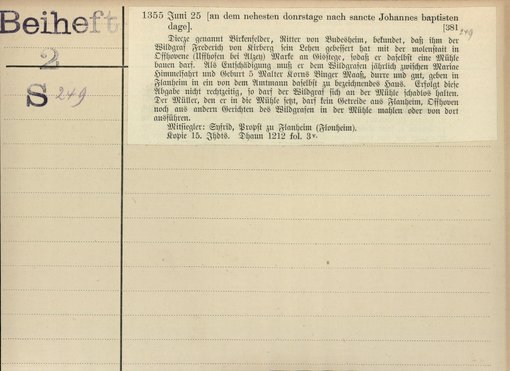 Beiheft
2
S 249
1355 Juni 25 [an dem nehesten donrstage nach sancte Johannes baptisten
dage]. [381
249
Diecze genannt Birkenfelder, Ritter von Budesheim, bekundet, daß ihm der
Wildgraf Frederich von Kirberg sein Lehen gebessert hat mit der molenstait in
Offhovene (Uffhofen bei Alzey) Marke an Gisstege, sodaß er daselbst eine Mühle
bauen darf. Als Entschädigung muß er dem Wildgrafen jährlich zwischen Mariae
Himmelfahrt und Geburt 5 Malter Korns Binger Maaß, durre und gut, geben in
Flanheim in ein von dem Amtmann daselbst zu bezeichnendes Haus. Erfolgt diese
Abgabe nicht rechtzeitig, so darf der Wildgraf sich an der Mühle schadlos halten.
Der Müller, den er in die Mühle setzt, darf kein Getreide aus Flanheim, Offhoven
noch aus andern Gerichten des Wildgrafen in der Mühle mahlen oder von dort
ausführen.
Mitsiegler: Syfrid, Propst zu Flanheim (Flonheim).
Kopie 15. Jhdts. Dhaun 1212 fol. 3v.